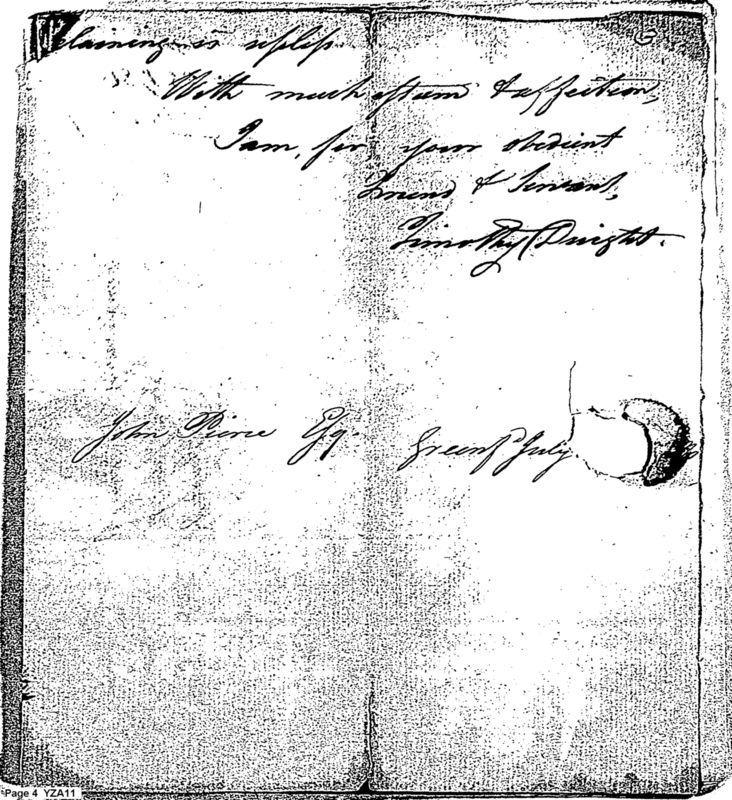 plaining is useless.
With much esteem & affection,
I am, sir, your obedient
Friend & Servant,
Timothy Dwight.
John Pierce Esq. Greenfd July
Page 4 YZA11